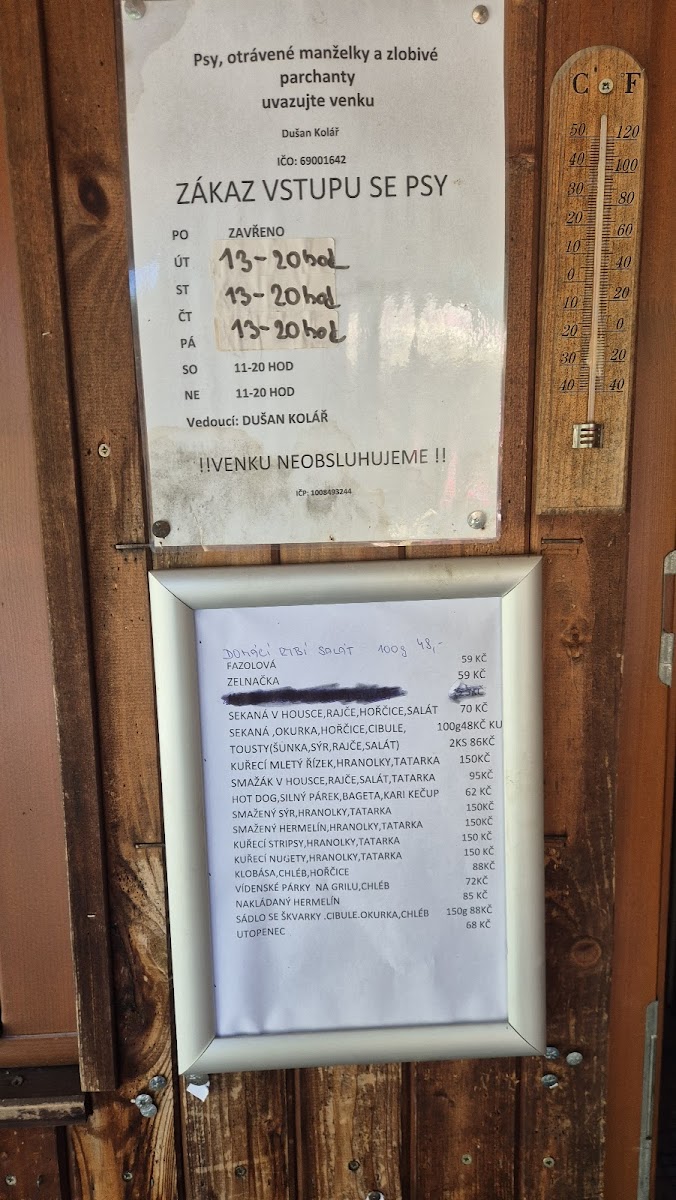 Psy, otrávené manželky a zlobivé
parchanty
uvazujte venku
Dušan Kolář
IČO: 69001642
ZÁKAZ VSTUPU SE PSY
PO ZAVŘENO
ÚT 13-20hod
ST 13-20hod
ČT 13-20hod
PÁ
SO 11-20 HOD
NE 11-20 HOD
Vedoucí: DUŠAN KOLÁŘ
!!VENKU NEOBSLUHUJEME !!
IČP: 1008493244
C F
50 120
40 100
30 80
20 60
10 40
0 20
10 0
20 20
30 40
40
DOMÁCÍ RYBÍ SALÁT 100g 48,-
FAZOLOVÁ 59 KČ
ZELNAČKA 59 KČ
SEKANÁ V HOUSCE,RAJČE,HOŘČICE,SALÁT 70 KČ
SEKANÁ ,OKURKA,HOŘČICE,CIBULE, 100g48KČ KU
TOUSTY(ŠUNKA,SÝR,RAJČE,SALÁT) 2KS 86KČ
KUŘECÍ MLETÝ ŘÍZEK,HRANOLKY,TATARKA 150KČ
SMAŽÁK V HOUSCE,RAJČE,SALÁT,TATARKA 95KČ
HOT DOG,SILNÝ PÁREK,BAGETA,KARI KEČUP 62 KČ
SMAŽENÝ SÝR,HRANOLKY,TATARKA 150KČ
SMAŽENÝ HERMELÍN,HRANOLKY,TATARKA 150KČ
KUŘECÍ STRIPSY,HRANOLKY,TATARKA 150 KČ
KUŘECÍ NUGETY,HRANOLKY,TATARKA 150 KČ
KLOBÁSA,CHLÉB,HOŘČICE 88KČ
VÍDENSKÉ PÁRKY NA GRILU,CHLÉB 72KČ
NAKLÁDANÝ HERMELÍN 85 KČ
SÁDLO SE ŠKVARKY .CIBULE.OKURKA,CHLÉB 150g 88KČ
UTOPENEC 68 KČ